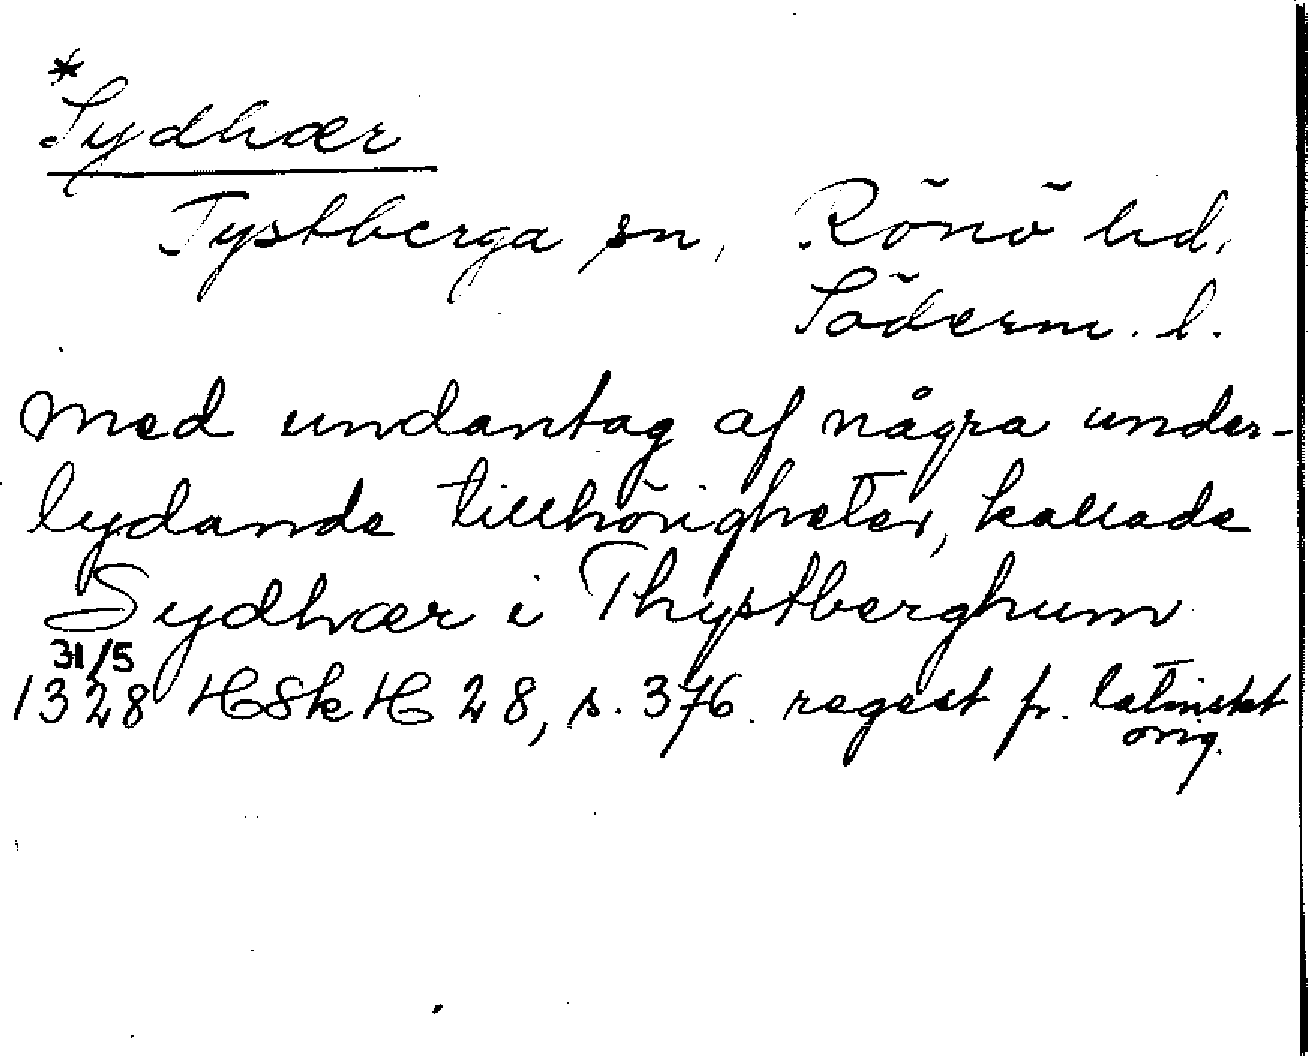 *
Sydhær
Tystberga sn, Rönö hd,
Söderm. l.
med undantag af några under-
lydande tillhörigheter, kallade
Sydhær i Thystberghum
31/5
1328 HSkH 28, s. 376. regest fr. latinskt
orig.